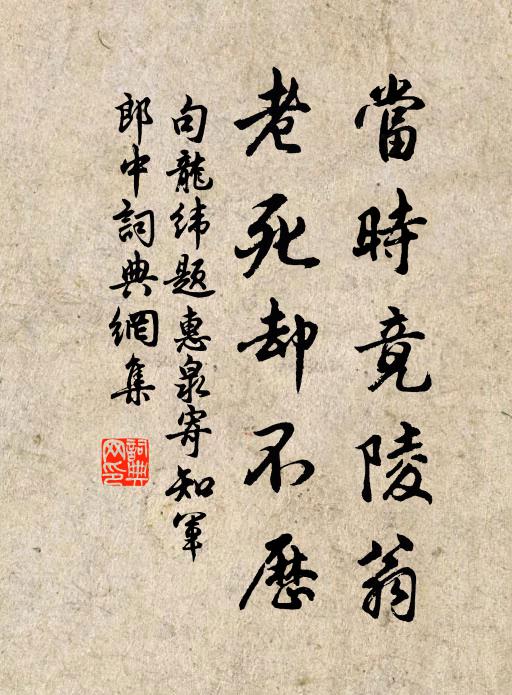 當時竟陵翁
老死却不歷
句龍緯題惠泉寄知軍
郎中詞典網集
詞典網印